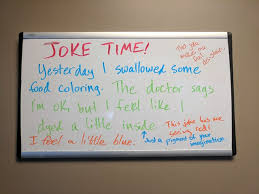 JOKE TIME!
Yesterday I swallowed some
food coloring. The doctor says
I'm ok, but I feel like I
dyed a little inside.
I feel a little blue.
This joke has me
seeing red!
Just a pigment of your
imagination